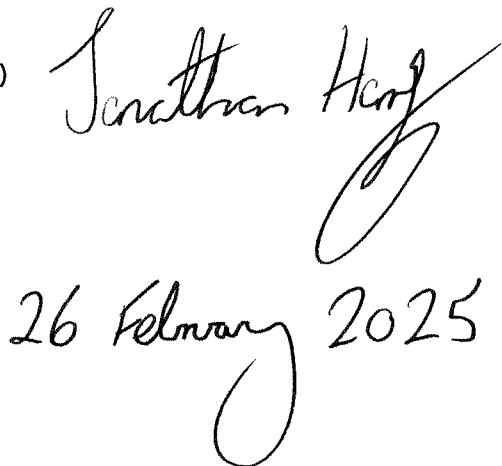 ) Jonathan
26 February 2025